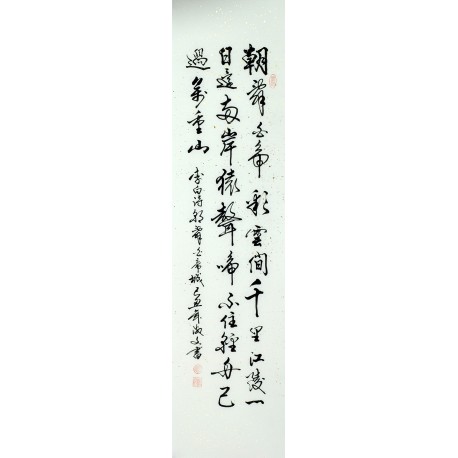 朝辞白帝彩雲間千里江陵一
日還两岸猿聲啼不住輕舟已
過萬重山
李白诗朝辞白帝城己丑年淑文書